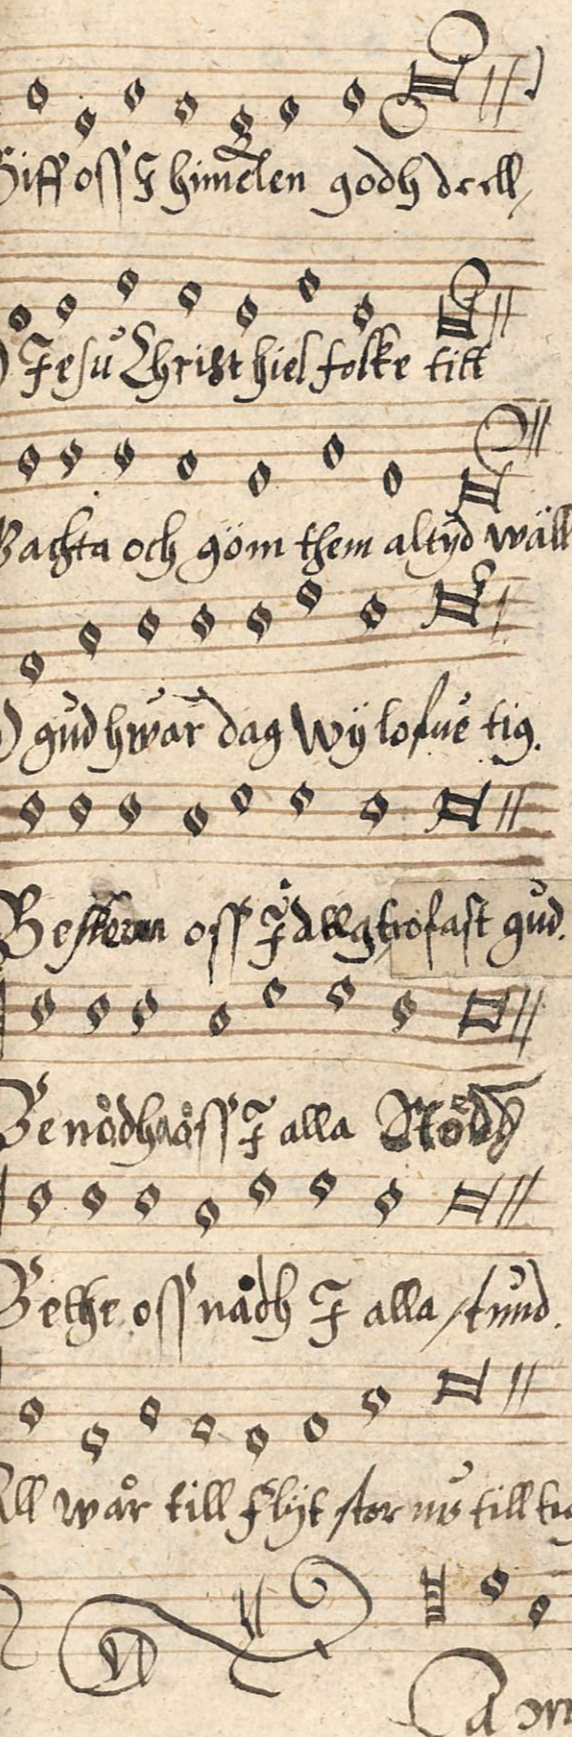 Giff oss I himelen godh deell,
O Jesu Christ hielf folke titt
Wachta och göm them altijd wäll
O gud hwar dag wij lofue tig.
Beskerm oss I dagh trofast gud.
Benådha oss I alla Nödh
Bethe oss nådh I alla stund.
All wår till flijt stor nu till tig
A